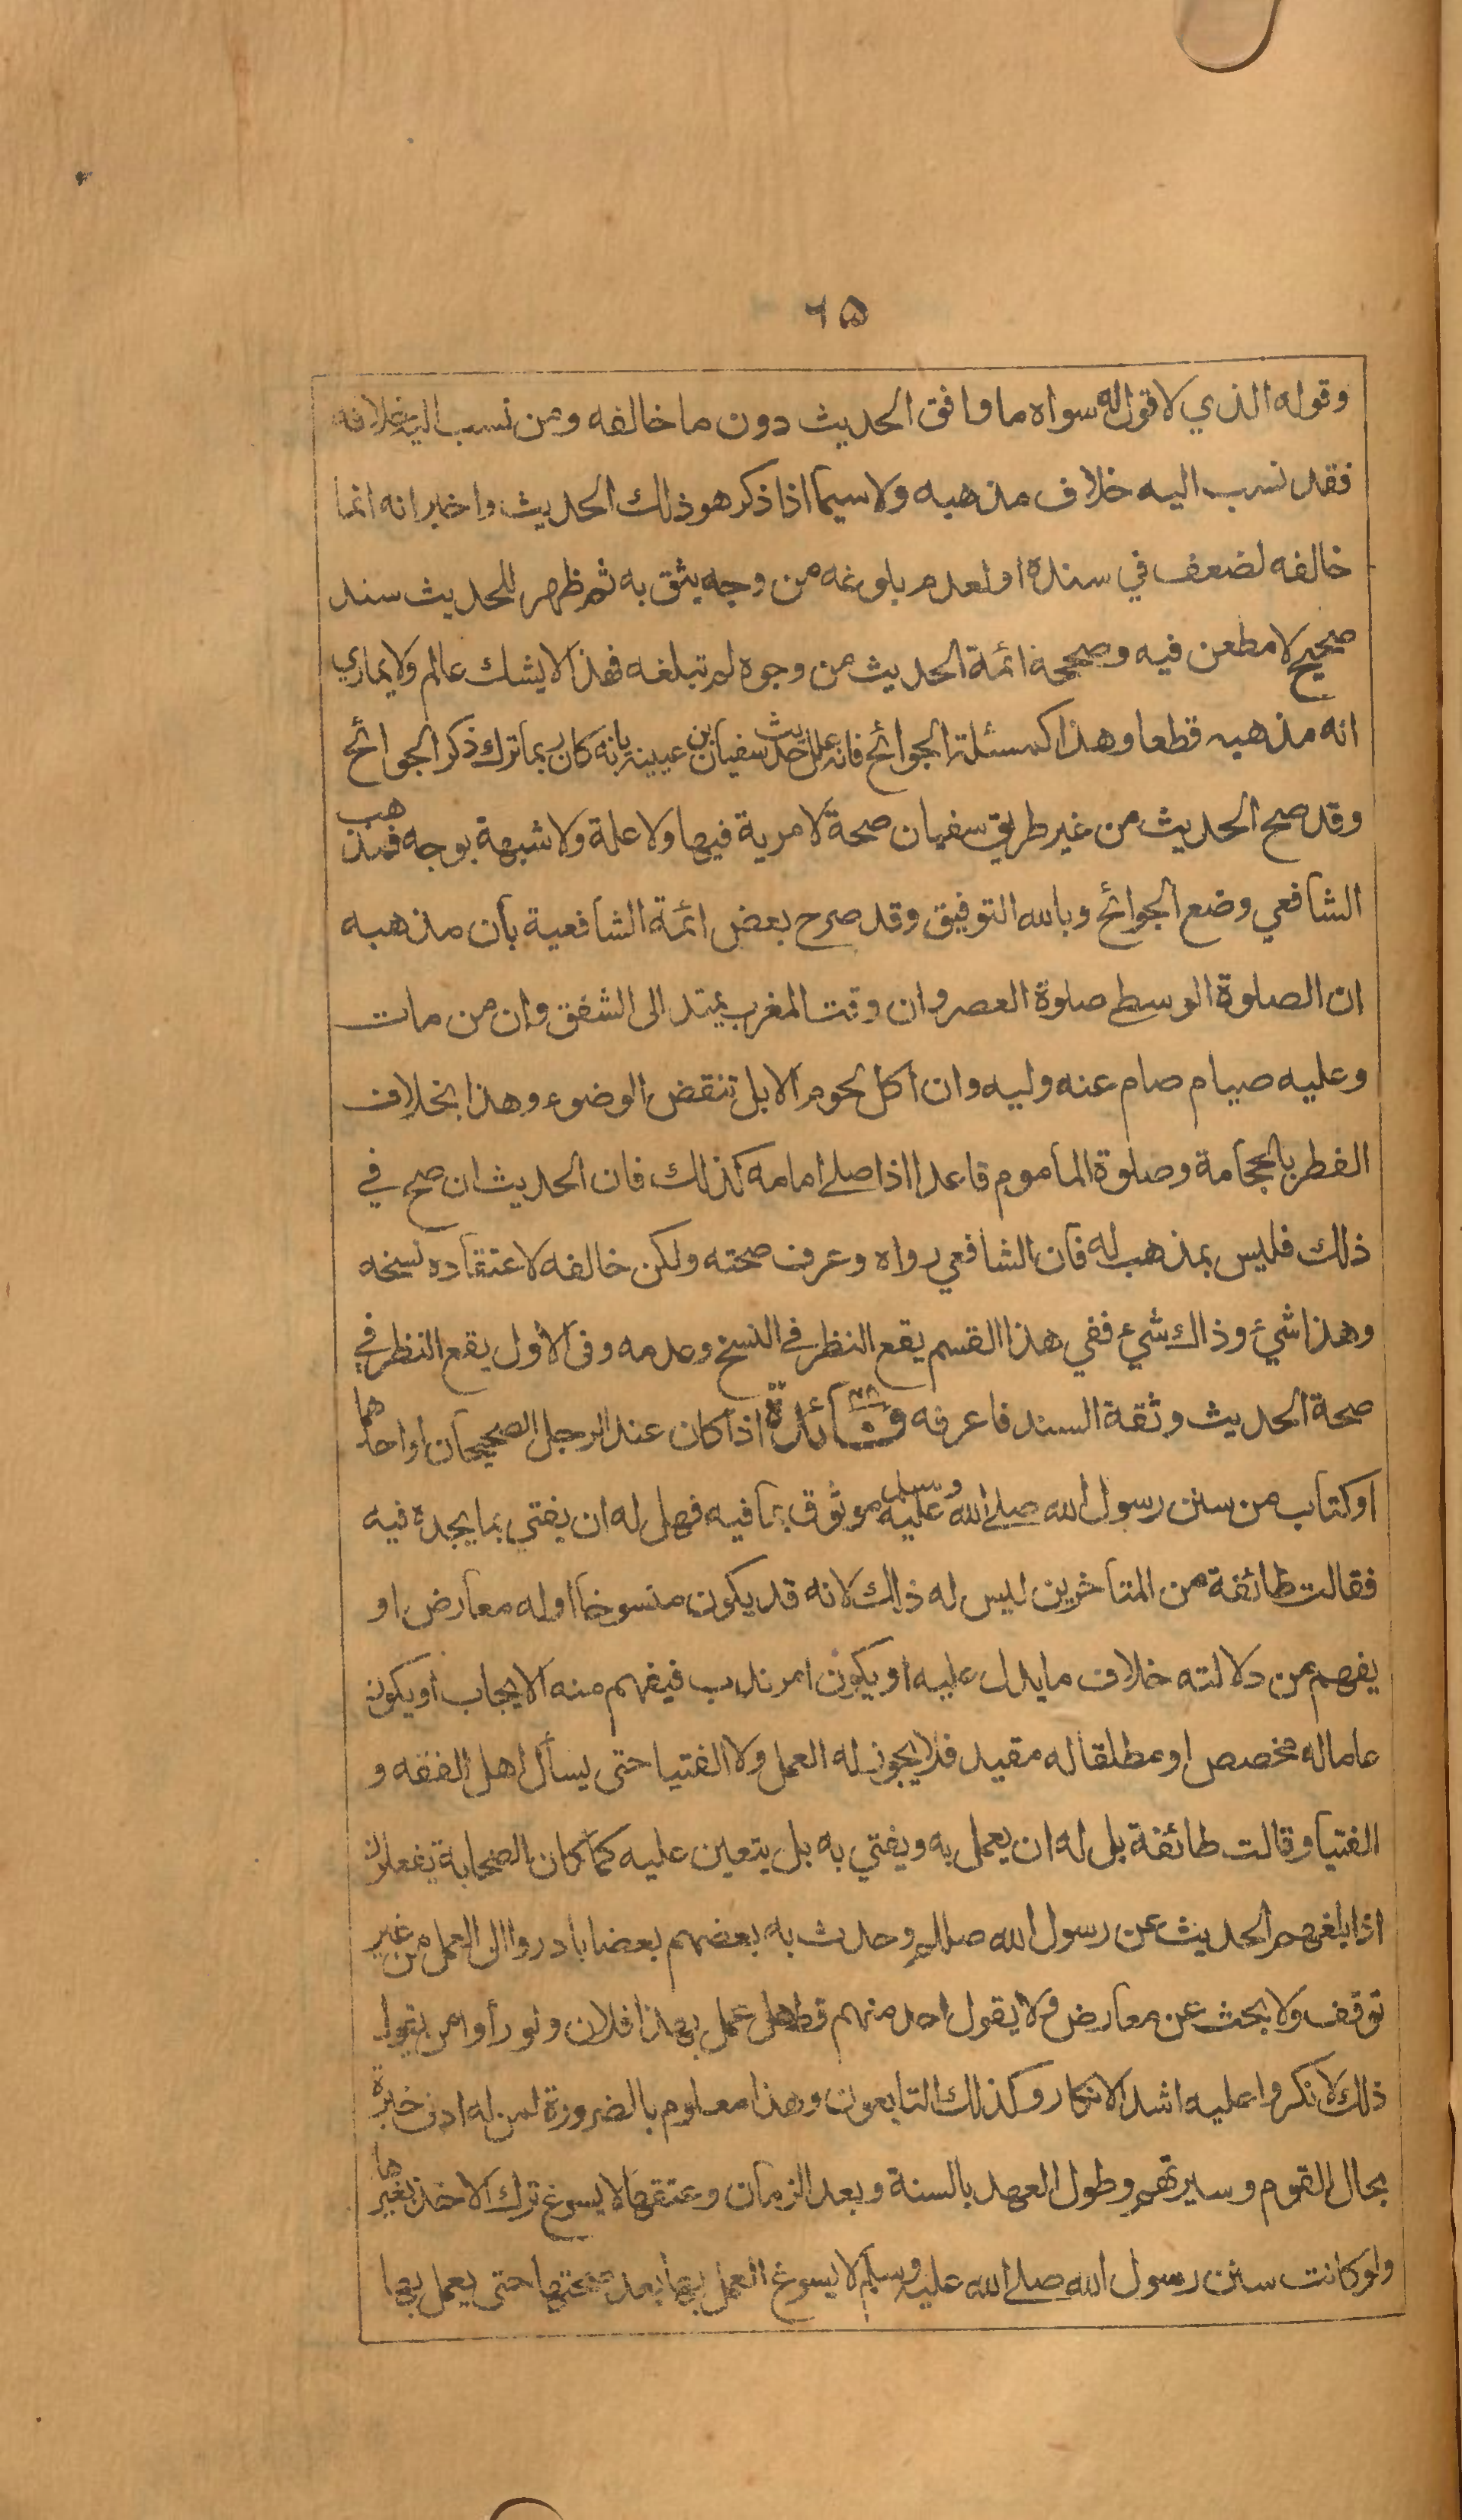 ٦٥
وقوله الذي لا قول له سواه ما وافق الحديث دون ما خالفه ومن نسب اليه خلافه
فقد نسب اليه خلاف مذهبه ولا سيما اذا ذكر هو ذلك الحديث واخبر انه انما
خالفه لضعف في سنده او لعدم بلوغه من وجه يثق به ثم ظهر للحديث سند
صحيح لا مطعن فيه وصححه ائمة الحديث من وجوه لم تبلغه فهذا لا يشك عالم ولا يماري
انه مذهبه قطعا وهذا كمسئلة الجوائح فانه علل حديث سفيان بن عيينة بانه كان ربما ترك ذكر الجوائح
وقد صح الحديث من غير طريق سفيان صحة لا مرية فيها ولا علة ولا شبهة بوجه فمذهب
الشافعي وضع الجوائح وبالله التوفيق وقد صرح بعض ائمة الشافعية بان مذهبه
ان الصلوة الوسطى صلوة العصر وان وقت المغرب يمتد الى الشفق وان من مات
وعليه صيام صام عنه وليه وان اكل لحوم الابل تنقض الوضوء وهذا بخلاف
الفطر بالحجامة وصلوة المأموم قاعدا اذا صلى امامه كذلك فان الحديث ان صح في
ذلك فليس بمذهب له فان الشافعي رواه وعرف صحته ولكن خالفه لاعتقاده نسخه
وهذا شيء وذاك شيء ففي هذا القسم يقع النظر في النسخ وعدمه وفي الاول يقع النظر في
صحة الحديث وثقة السند فاعرفه فائدة اذا كان عند الرجل الصحيحان او احدهما
او كتاب من سنن رسول الله صلى الله عليه وسلم موثوق بما فيه فهل له ان يفتي بما يجده فيه
فقالت طائفة من المتاخرين ليس له ذلك لانه قد يكون منسوخا او له معارض او
يفهم من دلالته خلاف ما يدل عليه او يكون امر ندب فيفهم منه الايجاب او يكون
عاما له مخصص او مطلقا له مقيد فلا يجوز له العمل ولا الفتيا حتى يسأل اهل الفقه و
الفتيا وقالت طائفة بل له ان يعمل به ويفتي به بل يتعين عليه كما كان الصحابة يفعلون
اذا بلغهم الحديث عن رسول الله صللم وحدث به بعضهم بعضا بادروا الى العمل من غير
توقف ولا بحث عن معارض ولا يقول احد منهم قط هل عمل بهذا فلان ولو رأوا من يقول
ذلك لانكروا عليه اشد الانكار وكذلك التابعون وهذا معلوم بالضرورة لمن له ادنى خبرة
بحال القوم وسيرتهم وطول العهد بالسنة وبعد الزمان وعتقها لا يسوغ ترك الاخذ بغيرها
ولو كانت سنن رسول الله صلى الله عليه وسلم لا يسوغ العمل بها بعد صحتها حتى يعمل بها